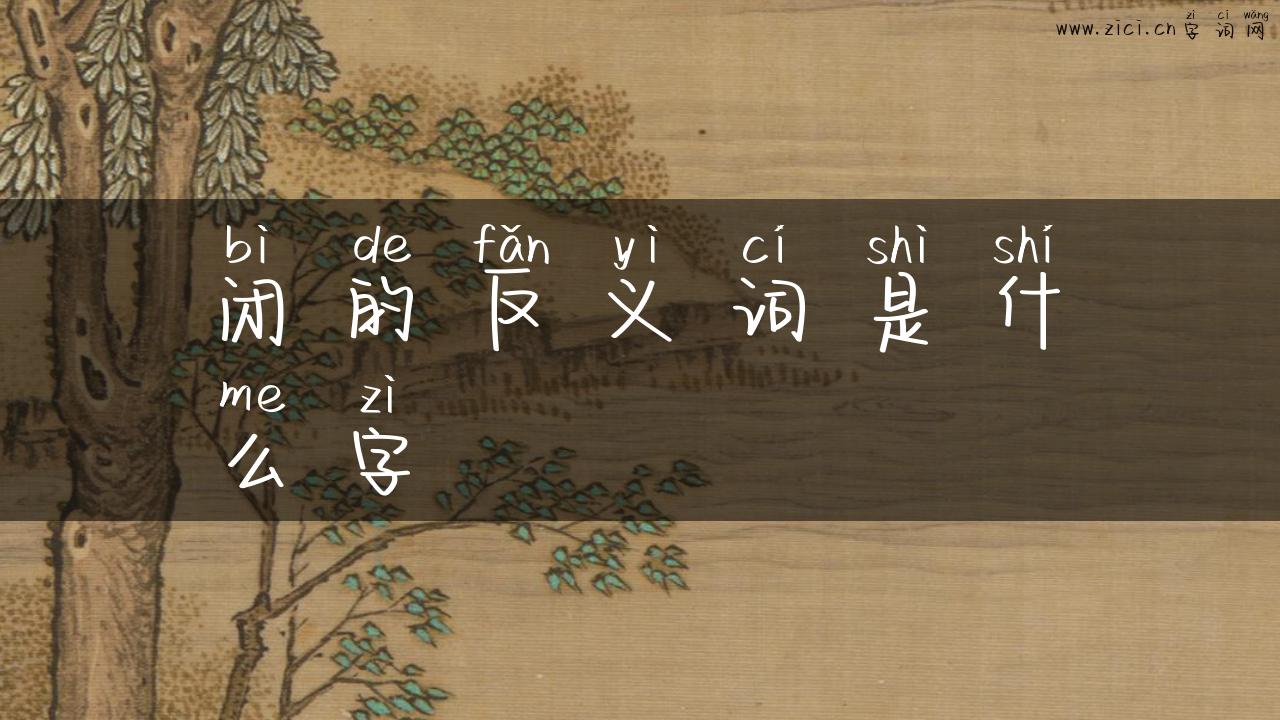 zì cí wǎng
www.zici.cn 字词网
bì de fǎn yì cí shì shí
闭的反义词是什
me zì
么字